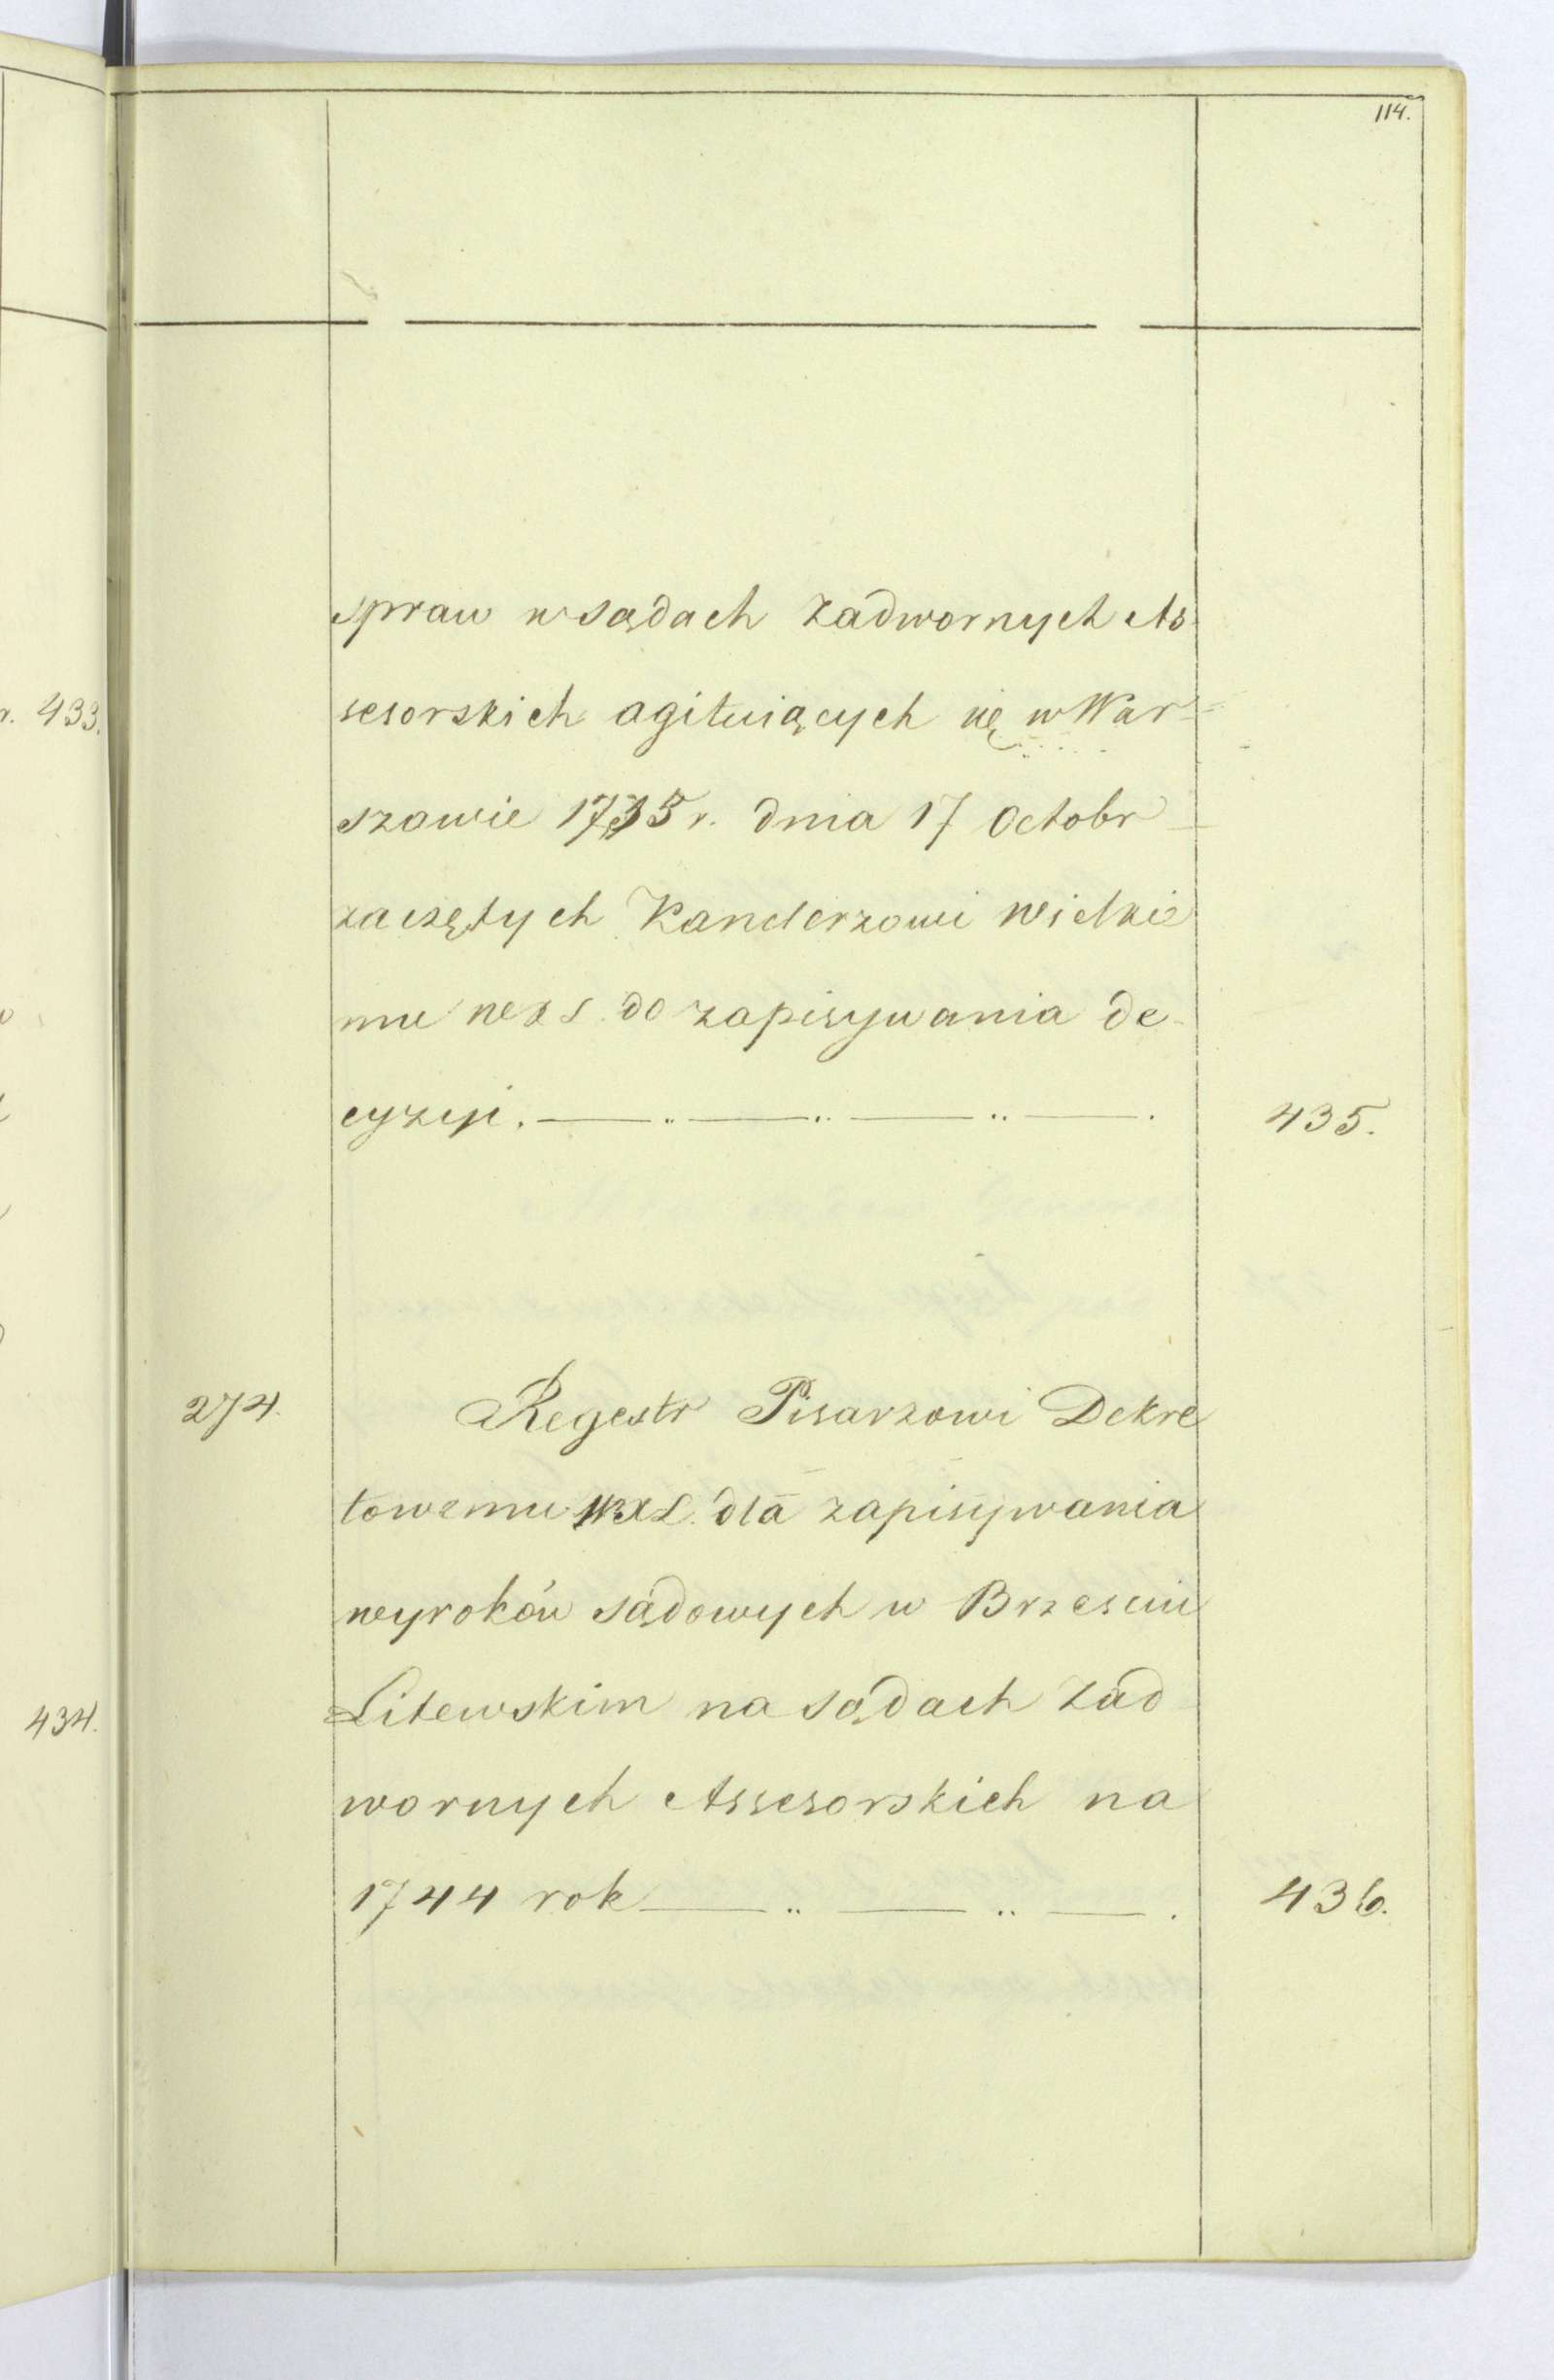 114.
r. 433.
434.
spraw w sądach Zadwornych As-
sesorskich agituiących się w War=
szawie 1735 r. dnia 17 Octobr
zaczętych Kanclerzowi Wielkie
mu WXL. do zapisywania de-
cyzyi. 435.
274. Regestr Pisarzowi Dekre
towemu WXL. dla zapisywania
wyroków sądowych w Brzesciu
Litewskim na sądach Zad
wornych Assesorskich na
1744 rok 436.